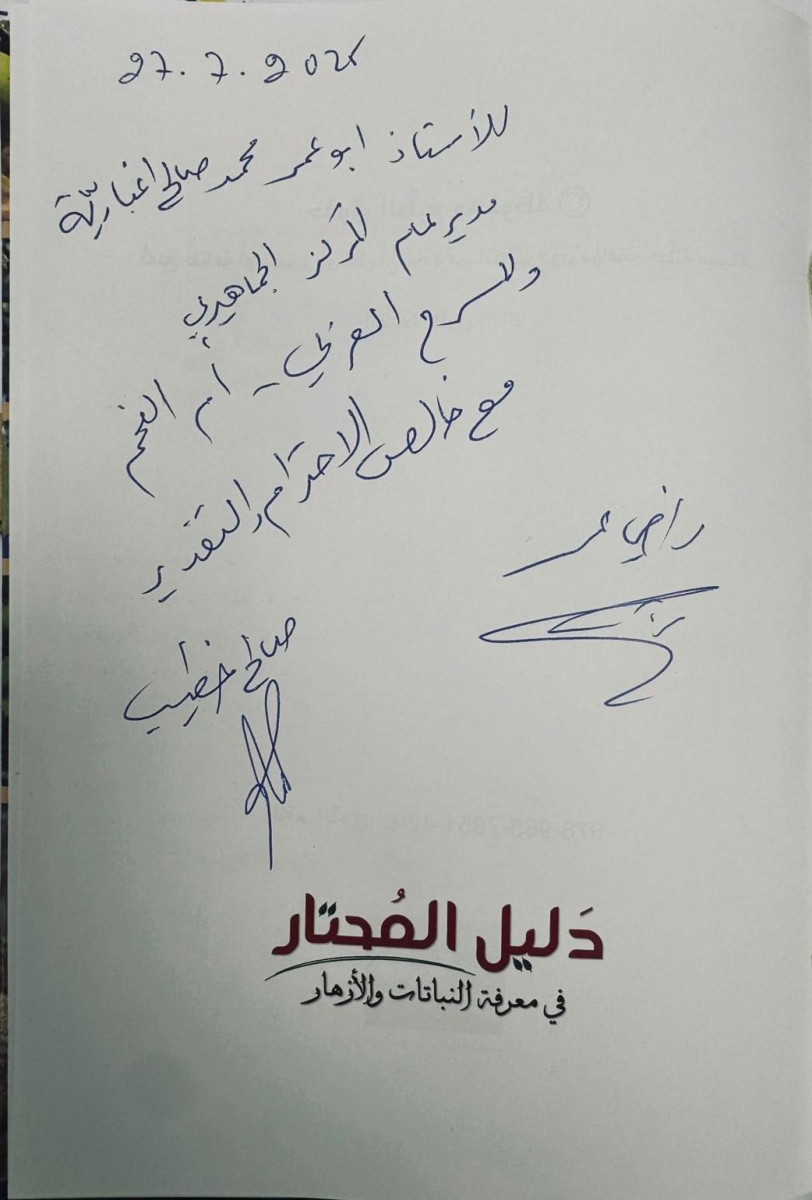 27.7.202
للأستاذ ابو عمر محمد صالح اغبارية
مدير عام المركز الجماهيري
وللمسرح العربي - أم الفحم
مع خالص الاحترام والتقدير
راضي عمر
صالح خطيب
دَليل المُحتار
في معرفة النباتات والأزهار